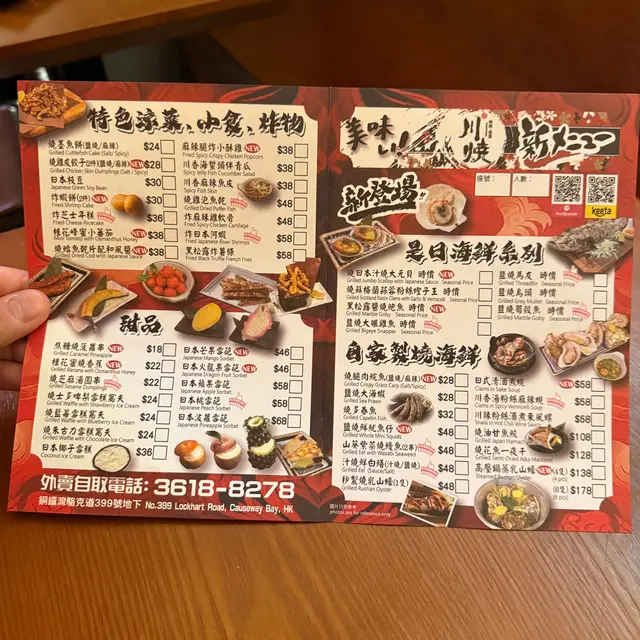 特色涼菜、小食、炸物
燒墨魚餅(鹽燒/麻辣) $24
Grilled Cuttlefish Cake (Salt/ Spicy)
燒雞皮餃子(2件)(鹽燒/麻辣) NEW $28
Grilled Chicken Skin Dumplings (Salt / Spicy)
日本枝豆 $30
Japanese Green Soy Bean
炸蝦餅(2件) NEW $30
Fried Shrimp Cake
炸芝士年糕 $36
Fried Cheese Ricecake
桂花蜂蜜小蕃茄 $38
Mini Tomato with Osmanthus Honey
燒鱈魚乾片配和風醬 NEW $48
Grilled Dried Cod with Japanese Sauce
麻辣脆炸小酥雞 NEW $38
Fried Spicy Crispy Chicken Popcorn
川香海蜇頭伴青瓜 $38
Spicy Jelly Fish Cucumber Salad
川香麻辣魚皮 $38
Spicy Fish Skin
燒雞泡魚乾 $48
Grilled Dried Puffer Fish
炸麻辣雞軟骨 $48
Fried Spicy Chicken Cartilage
炸日本河蝦 $48
Fried Japanese River Shrimps
黑松露炸薯條 $58
Fried Black Truffle French Fries
甜品
焦糖燒菠蘿串 NEW $18
Grilled Caramel Pineapple
桂花蜜燒香蕉 NEW $22
Grilled Banana with Osmanthus Honey
燒芝麻湯圓串 $22
Grilled Sesame Dumplings
燒士多啤梨雪糕窩夫 $24
Grilled Waffle with Strawberry Ice Cream
燒藍莓雪糕窩夫 $24
Grilled Waffle with Blueberry Ice Cream
燒朱古力雪糕窩夫 $24
Grilled Waffle with Chocolate Ice Cream
日本椰子雪糕 $36
Coconut Ice Cream
日本芒果雪葩 NEW $46
Japanese Mango Sorbet
日本火龍果雪葩 NEW $46
Japanese Dragon Fruit Sorbet
日本蘋果雪葩 $58
Japanese Apple Sorbet
日本桃雪葩 $58
Japanese Peach Sorbet
日本菠蘿雪葩 $68
Japanese Pineapple Sorbet
外賣自取電話: 3618-8278
銅鑼灣駱克道399號地下 No.399 Lockhart Road, Causeway Bay, HK
美味い
川燒
新メニュー
座號:
人數:
foodpanda
keeta
新登場
是日海鮮系列
燒日本汁燒大元貝 時價 NEW
Grilled Jumbo Scallop with Japanese Sauce Seasonal Price
燒蘇格蘭蒜蓉粉絲蟶子王 時價
Grilled Scotland Razor Clams with Garlic & Vermicelli Seasonal Price
黑松露鹽燒筍殼魚 時價 NEW
Grilled Marble Goby Seasonal Price
鹽燒大眼雞魚 時價
Grilled Bigeye Snapper Seasonal Price
鹽燒馬友 時價
Grilled Threadfin Seasonal Price
鹽燒烏頭 時價
Grilled Grey Mullet Seasonal Price
鹽燒筍殼魚 時價
Grilled Marble Goby Seasonal Price
自家製燒海鮮
燒脆肉鯇魚(鹽燒/麻辣) NEW $28
Grilled Crispy Grass Carp (Salt/Spicy)
鹽燒大海蝦 $28
Grilled Sea Prawn
燒多春魚 $48
Grilled Capelin Fish
鹽燒鮮魷魚仔 NEW $48
Grilled Whole Mini Squids
山葵墊菜燒鰻魚(2串) $48
Grilled Eel with Wasabi Seaweed
汁燒鮮白鱔(汁燒/鹽燒) $48
Grilled Eel (Sauce/Salt)
秘製燒乳山蠔(1隻) $48
Grilled Rushan Oyster
日式清酒煮蜆 NEW $58
Clams in Sake Soup
川香湯粉絲麻辣蜆 $58
Clams in Spicy Vermicelli Soup
川辣粉絲酒煮東風螺 $58
Snails in Hot Chili Wine Sauce
燒油甘魚鮫 $108
Grilled Japan Hamachi
燒花魚一夜干 $128
Grilled Semi-Dried Atka Mackerel
高壓鍋蒸乳山蠔 NEW (4隻) $138
Steamed Rushan Oyster (4 pcs)
(6隻) $178
(6 pcs)
圖片只供參考
photos are for reference only